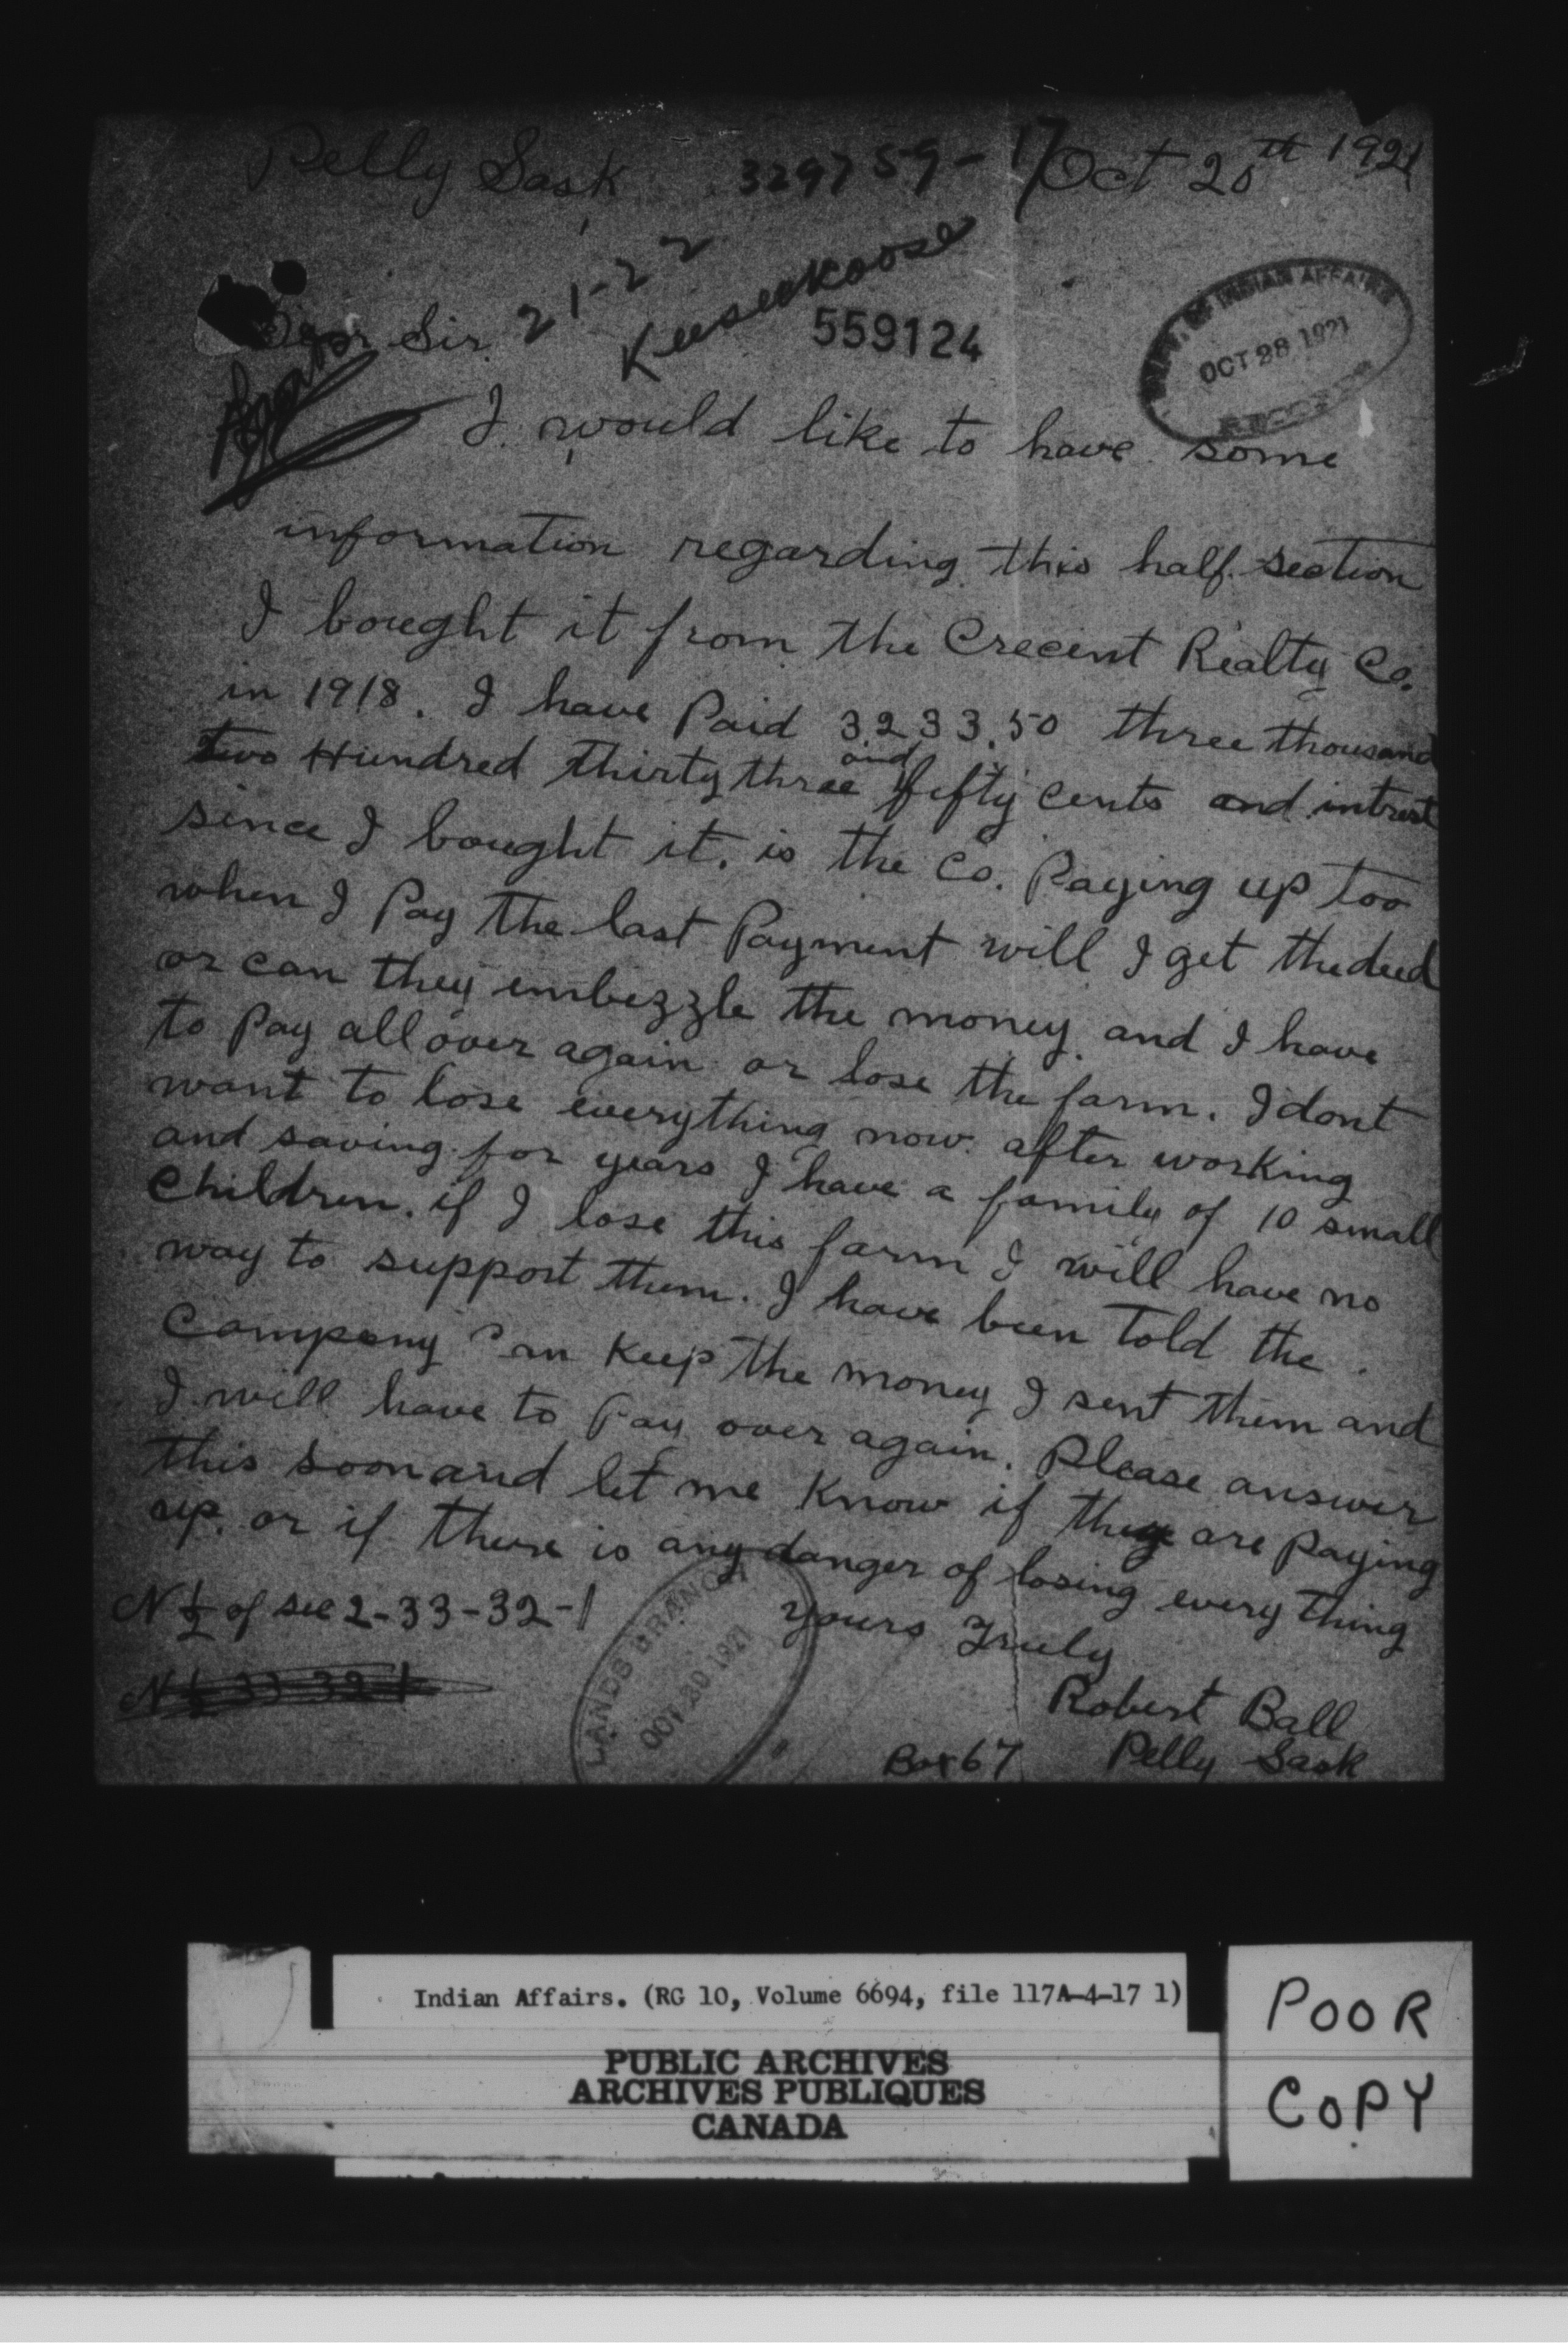 Pelly Sask 329759-17 Oct 20th 1921
21-22
Keeseekoose
Dear Sir.
559124
DEPT. OF INDIAN AFFAIRS
OCT 28 1921
RECORDS
I would like to have some
information regarding this half section
I bought it from the Crecent Realty Co.
in 1918. I have Paid 3233.50 three thousand
two Hundred thirty three and fifty cents and intrest
since I bought it. is the Co. Paying up too
when I Pay the last Payment will I get the deed
or can they embezzle the money and I have
to Pay all over again or lose the farm. I dont
want to lose everything now after working
and saving for years I have a family of 10 small
Children. if I lose this farm I will have no
way to support them. I have been told the
Company can Keep the money I sent them and
I will have to Pay over again. Please answer
this soon and let me Know if they are Paying
up. or if there is any danger of losing every thing
N ½ of sec 2-33-32-1
Yours Truly
N ½ 33 32 1
LANDS BRANCH
OCT 30 1921
Robert Ball
Box 67 Pelly Sask
Indian Affairs. (RG 10, Volume 6694, file 117A-4-17 1)
PUBLIC ARCHIVES
ARCHIVES PUBLIQUES
CANADA
POOR
COPY